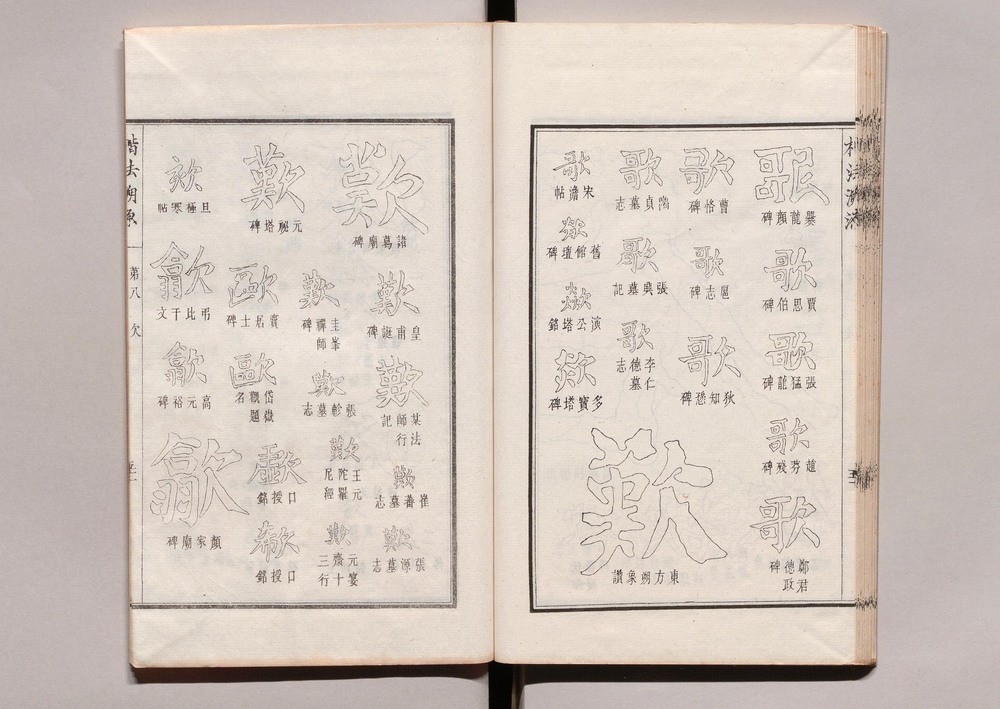 歌
爨龍顏碑
歌
賈思伯碑
歌
張猛龍碑
歌
趙芬殘碑
歌
鄭君德政碑
歌
曹恪碑
歌
扈志碑
歌
狄知愻碑
歌
貞墓志
歌
張興墓記
歌
李仁德墓志
歌
宋儋帖
欻
舊館壇碑
欻
演公塔銘
欻
多寶塔碑
歎
東方朔象讚
歎
諸葛廟碑
歎
皇甫誕碑
歎
某法師行記
歎
崔蕃墓志
歎
張源墓志
歎
元秘塔碑
歎
圭峯禪師碑
歎
張軫墓志
歎
王元陀羅尼經
歎
元齋三十行
歐
竇居士碑
歐
岱嶽觀題名
歔
口授銘
欷
口授銘
欬
旦極寒帖
歙
弔比干文
歙
高元裕碑
歙
顏家廟碑
楷法溯源 第八 次